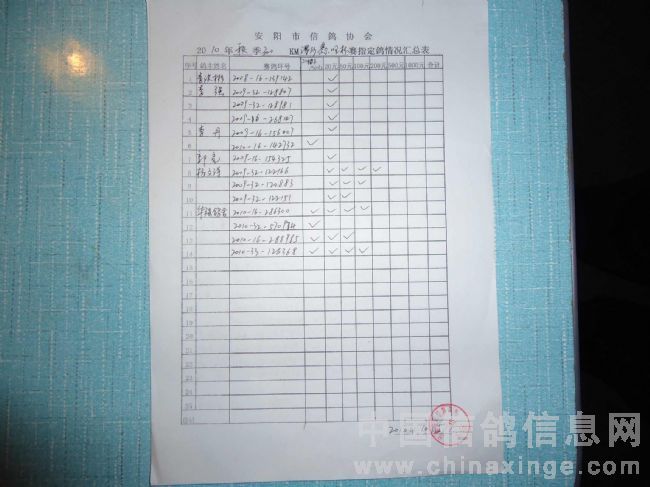 安阳市信鸽协会
2010年秋季 KM 赛指定鸽情况汇总表
序号 鸽主姓名 赛鸽环号 20元 50元 100元 200元 500元 1000元 合计
1 2008-16-159142 ✓
2 李强 2009-32-128807 ✓
3 2009-32-128981 ✓
4 2009-16-268107 ✓
5 李丹 2009-16-156007 ✓
6 2010-16-142732 ✓
7 2009-16-154325 ✓
8 杨文沛 2009-32-122166 ✓ ✓ ✓ ✓
9 2009-32-120883 ✓ ✓ ✓
10 2009-32-122151 ✓ ✓
11 2010-16-286300 ✓ ✓ ✓ ✓
12 2010-32-570984 ✓
13 2010-16-288985 ✓ ✓ ✓
14 2010-33-126368 ✓ ✓ ✓ ✓
15
16
17
18
19
20
21
22
23
24
中国信鸽信息网
www.chinaxinge.com